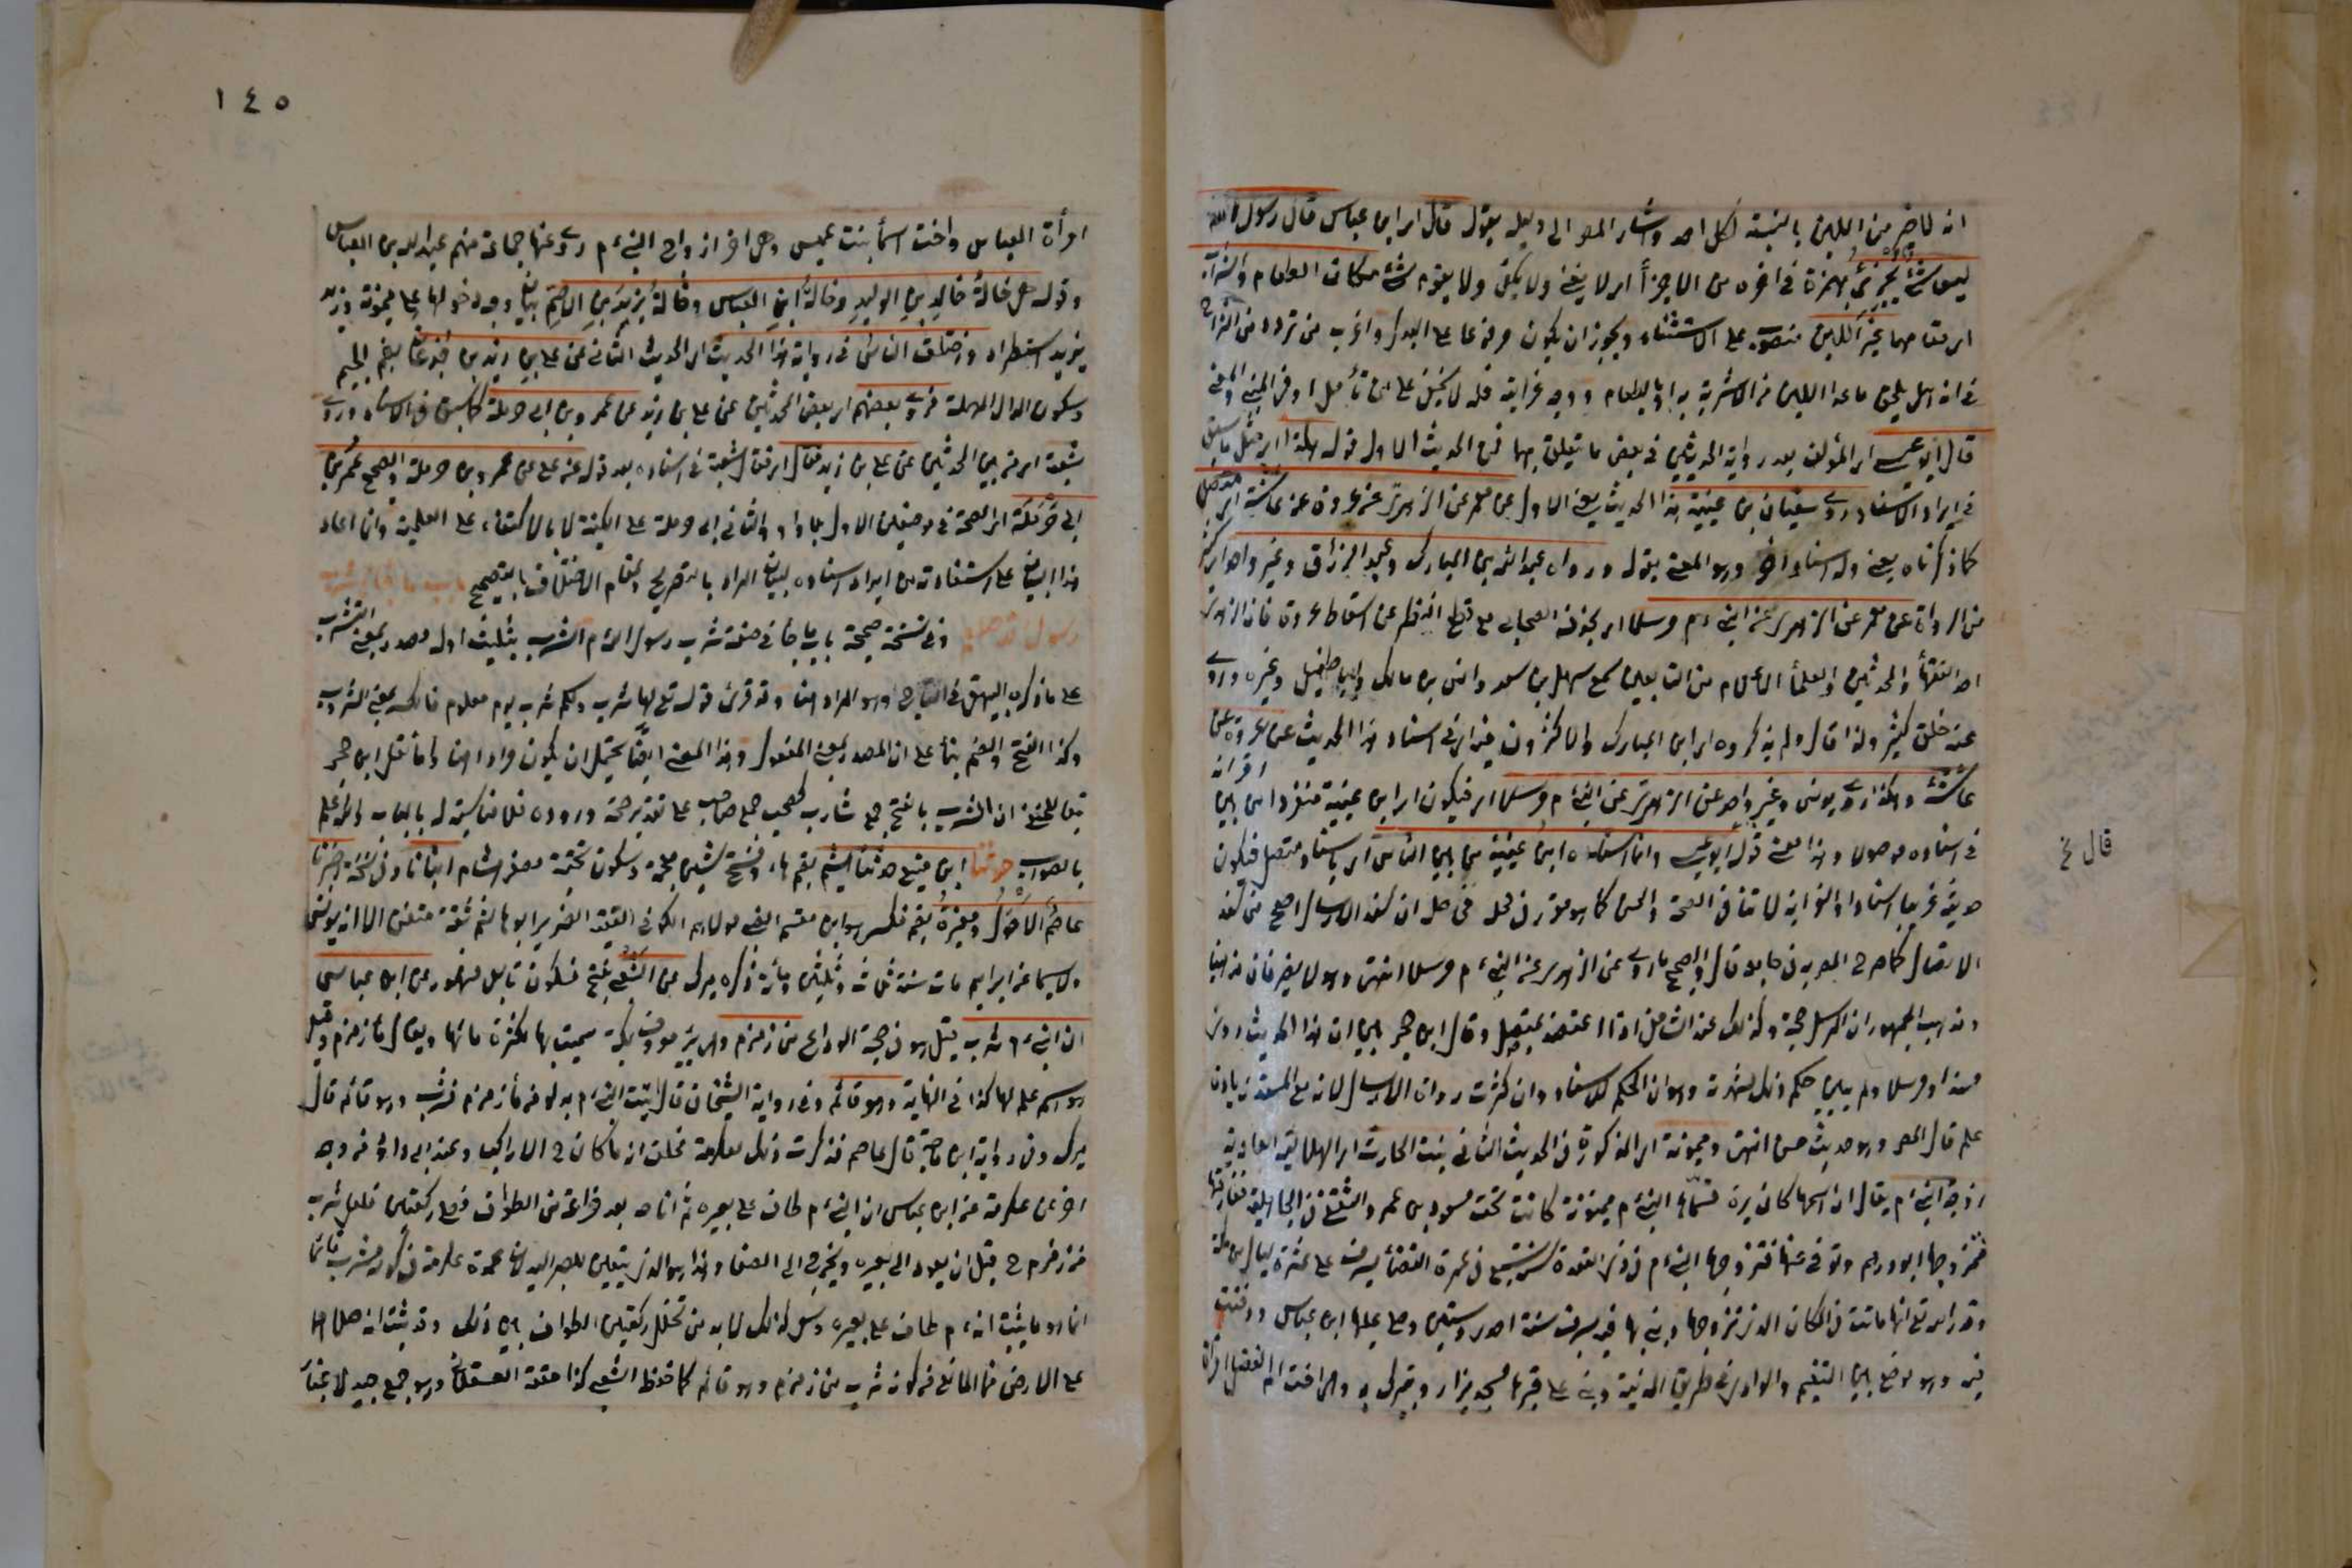 انه لا خير من اللبن بالنسبة لكل احد واشار المص الى دليله بقوله قال اي ابن عباس قال رسول الله
ليس شئ يجزئ بهمزة في اخره من الاجزأ اي لا يغنى ولا يكفى ولا يقوم شئ مكان الطعام والشراب
اي مقامهما غير اللبن منصوب على الاستثناء ويجوز ان يكون مرفوعا على البدل واغرب من تردد من الشراح
في انه هل يلحق ما عدا اللبن من الاشربة به او بالطعام ووجه غرابته فلا يخفى على من تأمل ادنى
قال ابو عيسى اي المؤلف بعد رواية الحديثين في بعض ما يتعلق بهما فمن الحديث الاول قوله هكذا اي مثل ما سبق
في ايراد الاسناد روى سفيان بن عيينة هذا الحديث يعنى الاول عن معمر عن الزهري عن عروة عن عائشة اي متصل
كما ذكرناه يعنى وله اسناد اخر وهو المعنى بقوله ورواه عبد الله بن المبارك وعبد الرزاق وغير واحد اي كثير
من الرواة عن معمر عن الزهري عن النبي ءم مرسلا اي بحذف الصحابي مع قطع النظر عن اسقاط عروة فان الزهري
احد الفقهأ والمحدثين والعلمأ الاعلام من التابعين سمع سهل بن سعد وانس بن مالك وابا طفيل وغيره وروى
عنه خلق كثير ولذا قال ولم يذكروه اي ابن المبارك والاكثرون فيه اي في اسناد هذا الحديث عن عروة عن
عائشة وهكذا روى يونس وغير واحد عن الزهري عن النبي ءم مرسلا اي فيكون اي ابن عيينة منفردا من بين اقرانه
في اسناده موصولا وهذا معنى قول ابو عيسى وانما اسنده ابن عيينة من بين الناس اي باسناد متصل فيكون
حديثه غريبا اسنادا والغرابة لا تنافى الصحة والحسن كما هو مقرر في محله فحاصله ان سند الارسال اصح من سند
الاتصال كما صرح المص به في جامعه وقال والصحيح ما روى عن الزهري عن النبي ءم مرسلا انتهى وهو لا يضر فان مذهبنا
ومذهب الجمهور ان المرسل حجة وكذلك عند الشافعي اذا اعتضد بمتصل وقال ابن حجر بين ان هذا الحديث روى
مسندا ومرسلا ولم يبين حكم ذلك لشهرته وهو ان الحكم للاسناد وان كثرت رواة الارسال لان مع المسند زيادة
علم قال المص وهو حديث حسن انتهى وميمونة اي المذكورة في الحديث الثاني بنت الحارث اي الهلالية العامرية
زوج النبي ءم يقال ان اسمها كان برة فسماها النبي ءم ميمونة كانت تحت مسعود بن عمرو الثقفي في الجاهلية ففارقها
فتزوجها ابو درهم وتوفي عنها فتزوجها النبي ءم في ذي القعدة سنة سبع في عمرة القضأ بسرف على عشرة اميال من مكة
وقدر الله تع انها ماتت في المكان الذي تزوجها وبنى بها فيه بسرف سنة احدى وستين وصلى عليها ابن عباس ودفنت
فيه وهو موضع بين التنعيم والوادي في طريق المدينة وبنى على قبرها مسجد يزار ويتبرك به وهي اخت ام الفضل امرأة
قال خ
١٤٥
امرأة العباس واخت اسمأ بنت عميس وهي اخر ازواج النبي ءم روى عنها جماعة منهم عبد الله بن العباس
وقوله هي خالة خالد بن الوليد وخالة ابن العباس وخالة يزيد بن الاصم بيان وجه دخولهما على ميمونة وزيد
يزيد استطرادا واختلف الناس في رواية هذا الحديث اي الحديث الثاني عن علي بن زيد بن جدعان بضم الجيم
وسكون الدال المهملة فروى بعضهم اي بعض المحدثين عن علي بن زيد عن عمرو بن ابي حرملة كما سبق في الاسناد وروى
شعبة اي من بين المحدثين عن علي بن زيد فقال اي فقال شعبة في اسناده بعد قوله عن علي عن عمرو بن حرملة والصحيح عمر بن
ابي حرملة اي الصحة في موضعين الاول بلا واو والثاني ابي حرملة على الكنية لا بالاكتفاء على العلمية وانما اعاد
هذا البيان على استفادته من ايراد اسناده لبيان المراد بالتصريح ومقام الاختلاف بالتصحيح باب ما جاء في شرب
رسول الله صلعم وفي نسخة صحيحة باب ما جا في صفة شرب رسول الله ءم الشرب بتثليث اوله مصدر بمعنى التشرب
على ما ذكره البيهقي في التاج وهو المراد هنا وقد قرئ قوله تع لها شرب ولكم شرب يوم معلوم فالكسر بمعنى المشروب
وكذا الفتح والضم بنأ على ان المصدر بمعنى المفعول وهذا المعنى ايضا يحتمل ان يكون مرادا هنا واما نقل ابن حجر
تبعا للحنفي ان الشرب بالفتح جمع شارب كصحب جمع صاحب على تقدير صحة وروده فلا مناسبة له بالباب والله اعلم
بالصواب حدثنا ابن منيع حدثنا هشيم بضم هاء وفتح شين معجمة وسكون تحتية مصغر هشام انبأنا وفي نسخة اخبرنا
عاصم الاحول ومغيرة بضم فكسر هو ابن مقسم الضبي مولاهم الكوفي الفقيه الضرير ابو هاشم ثقة متقن الا انه يدلس
ولا سيما عن ابراهيم مات سنة ثلث وثلثين ومائة ذكره ميرك عن الشعبي بفتح فسكون تابعي مشهور عن ابن عباس
ان النبي ءم شرب قيل هو في حجة الوداع من زمزم وهي بئر معروف بمكة سميت بها لكثرة مائها ويقال مأ زمزم وقيل
هو اسم علم لها كذا في النهاية وهو قائم وفي رواية الشيخان قال اتيت النبي ءم بدلو من مأ زمزم فشرب وهو قائم قال
ميرك وفي رواية ابن ماجة قال عاصم فذكرت ذلك لعكرمة فحلف انه ما كان ح الا راكبا وعند ابي داود من وجه
اخر عن عكرمة عن ابن عباس ان النبي ءم طاف على بعيره ثم اناخه بعد فراغه من الطواف فصلى ركعتين فلعل شرب
من زمزم ح قبل ان يعود الى بعيره ويخرج الى الصفا وهذا هو الذي يتعين المصير اليه لان عمدة عكرمة في كونه شرب قائما
انما هو ما ثبت انه ءم طاف على بعيره وسعى كذلك لا بد من تخلل ركعتين الطواف بين ذلك وقد ثبت انه صلاهما
على الارض فما المانع من كونه شرب من زمزم وهو قائم كما حفظ الشعبي كذا حققه العسقلاني وهو جمع جيد